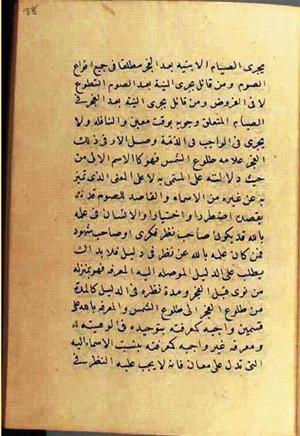 38
يجزى الصيام الا بنيه بعد الفجر مطلقا فى جميع انواع
الصوم ومن قائل يجزى النية بعد الصوم التطوع
لا فى الفروض ومن قائل يجزى النية بعد الفجر فى
الصيام المتعلق وجوبه بوقت معين والنافله ولا
يجزى فى الواجب فى الذمة وصل الامر فى ذلك
الفجر علامه طلوع الشمس فهو كالاسم الالهى من
حيث دلالته على المسمى به لا على المعنى الذى تميز
به عن غيره من الاسماء والقاصد للصوم قد
يقصده اضطرارا واختيارا والانسان فى علمه
بالله قد يكون صاحب نظر فكرى او صاحب شهود
فمن كان علمه بالله عن نظر فى دليل فلا بد ان
يطلب على الدليل الموصله اليه المعرفه فهو بمنزله
من نوى قبل الفجر ومدة نظره فى الدليل كالمدة
من طلوع الفجر الى طلوع الشمس والمعرفه بالله على
قسمين واجبه كمعرفته بتوحيده فى الوهيته
ومعرفه غير واجبه كمعرفته بنسبت الاسماء اليه
التى تدل على معان فانه لا يجب عليه النظر فى